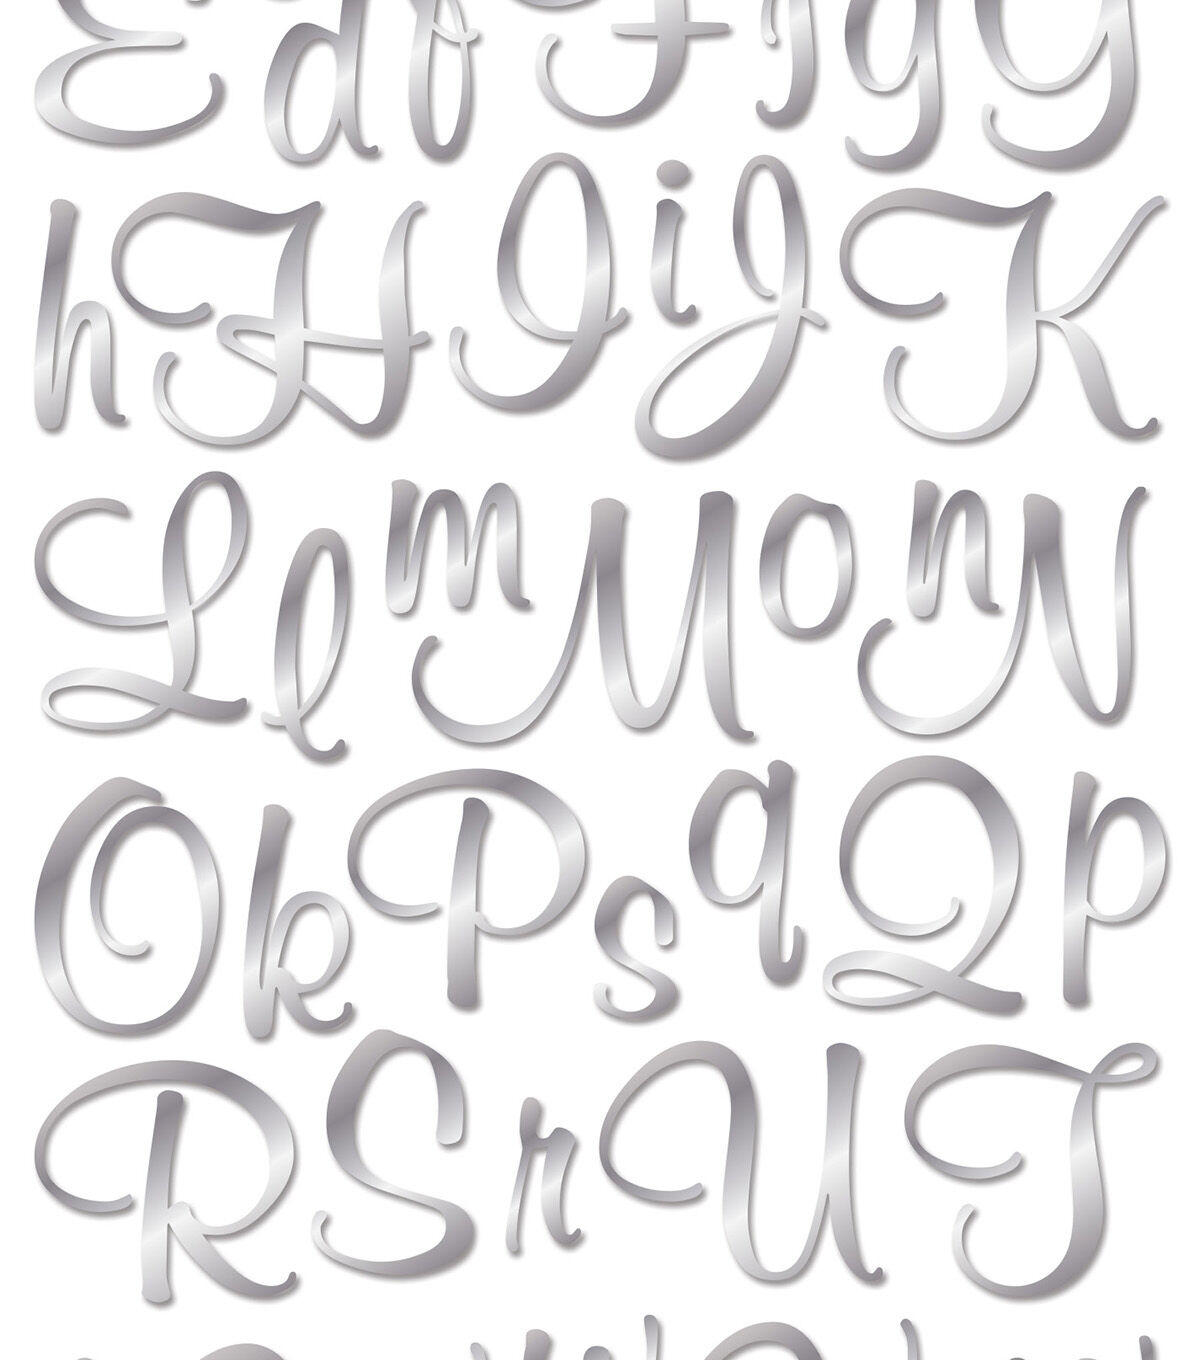 E d f F j g G
h H I i J K
L l m M o n N
O k P s q Q p
R S r U T